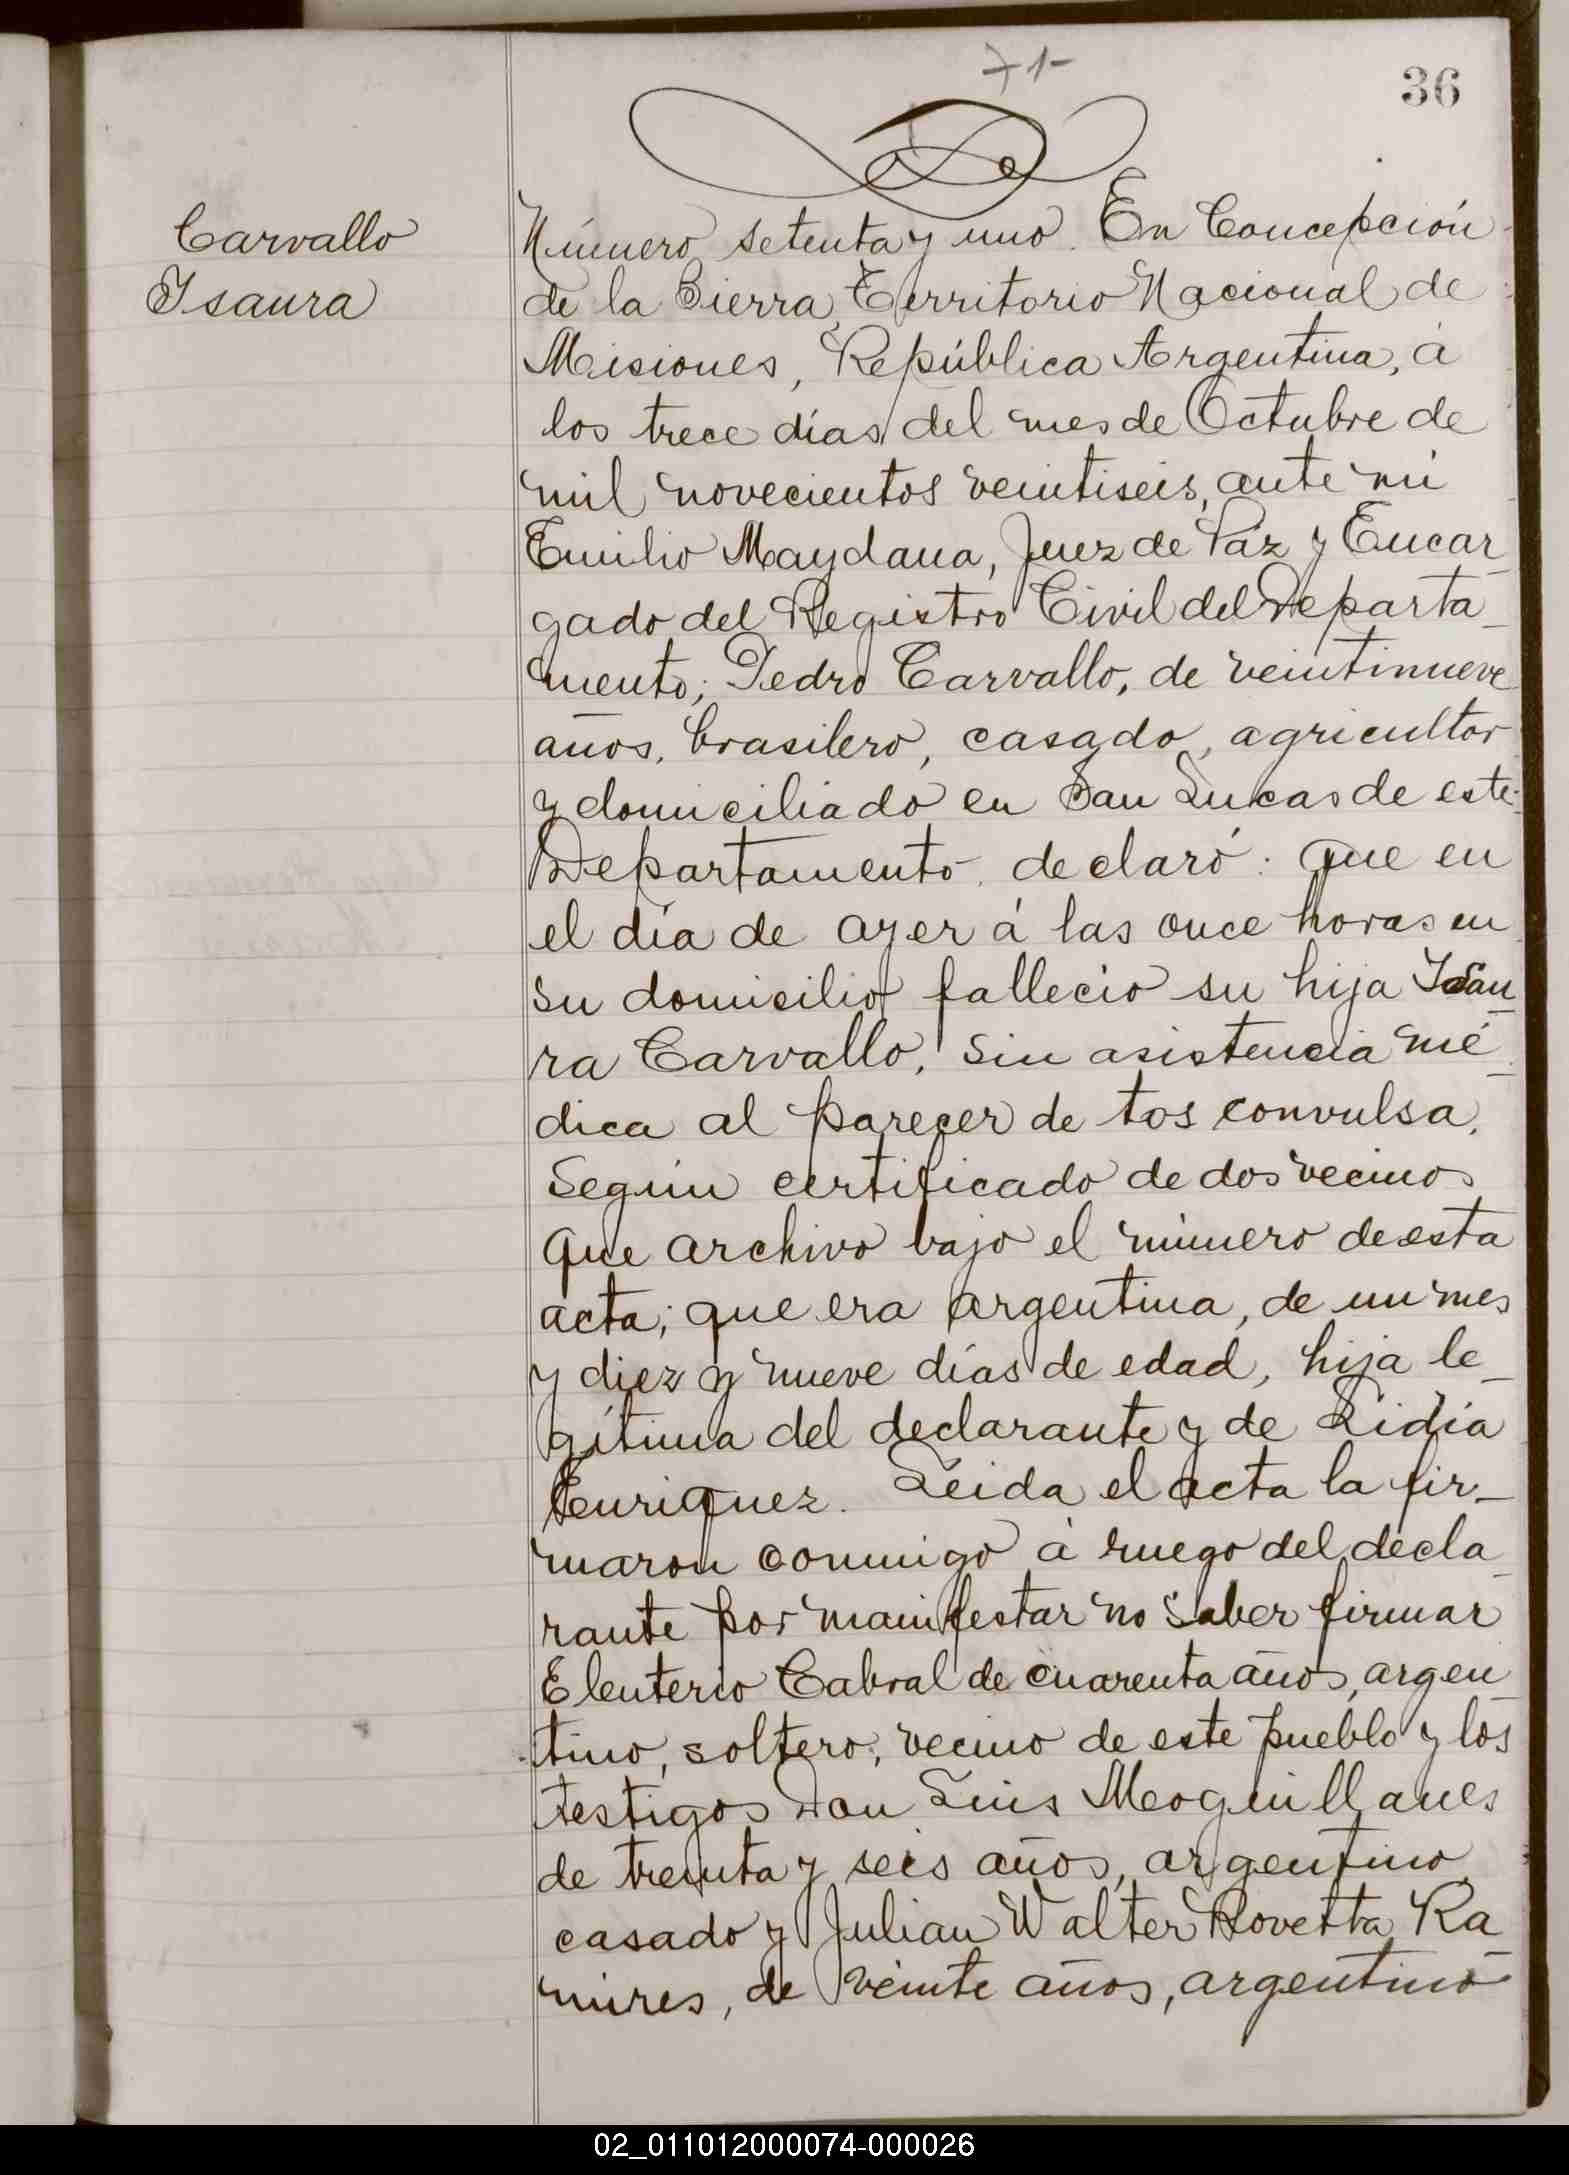 71-
36
Carvallo
Isaura
Número setenta y uno. En Concepción
de la Sierra, Territorio Nacional de
Misiones, República Argentina, á
los trece días del mes de Octubre de
mil novecientos veintiseis, ante mí
Emilio Maydana, Juez de Paz y Encar_
gado del Registro Civil del Departa_
mento; Pedro Carvallo, de veintinueve
años, brasilero, casado, agricultor
y domiciliado en San Lucas de este
Departamento, declaró: que en
el día de ayer á las once horas en
su domicilio falleció su hija Isau_
ra Carvallo, sin asistencia mé_
dica al parecer de tos convulsa,
según certificado de dos vecinos
que archivo bajo el número de esta
acta; que era argentina, de un mes
y diez y nueve días de edad, hija le_
gítima del declarante y de Lidia
Enriquez. Leida el acta la fir_
maron conmigo á ruego del decla_
rante por manifestar no saber firmar
Eleuterio Cabral de cuarenta años, argen_
tino, soltero, vecino de este pueblo y los
testigos Don Luis Moguillanes
de treinta y seis años, argentino,
casado y Julian Walter Rovetta Ra_
mires, de veinte años, argentino
02_011012000074-000026